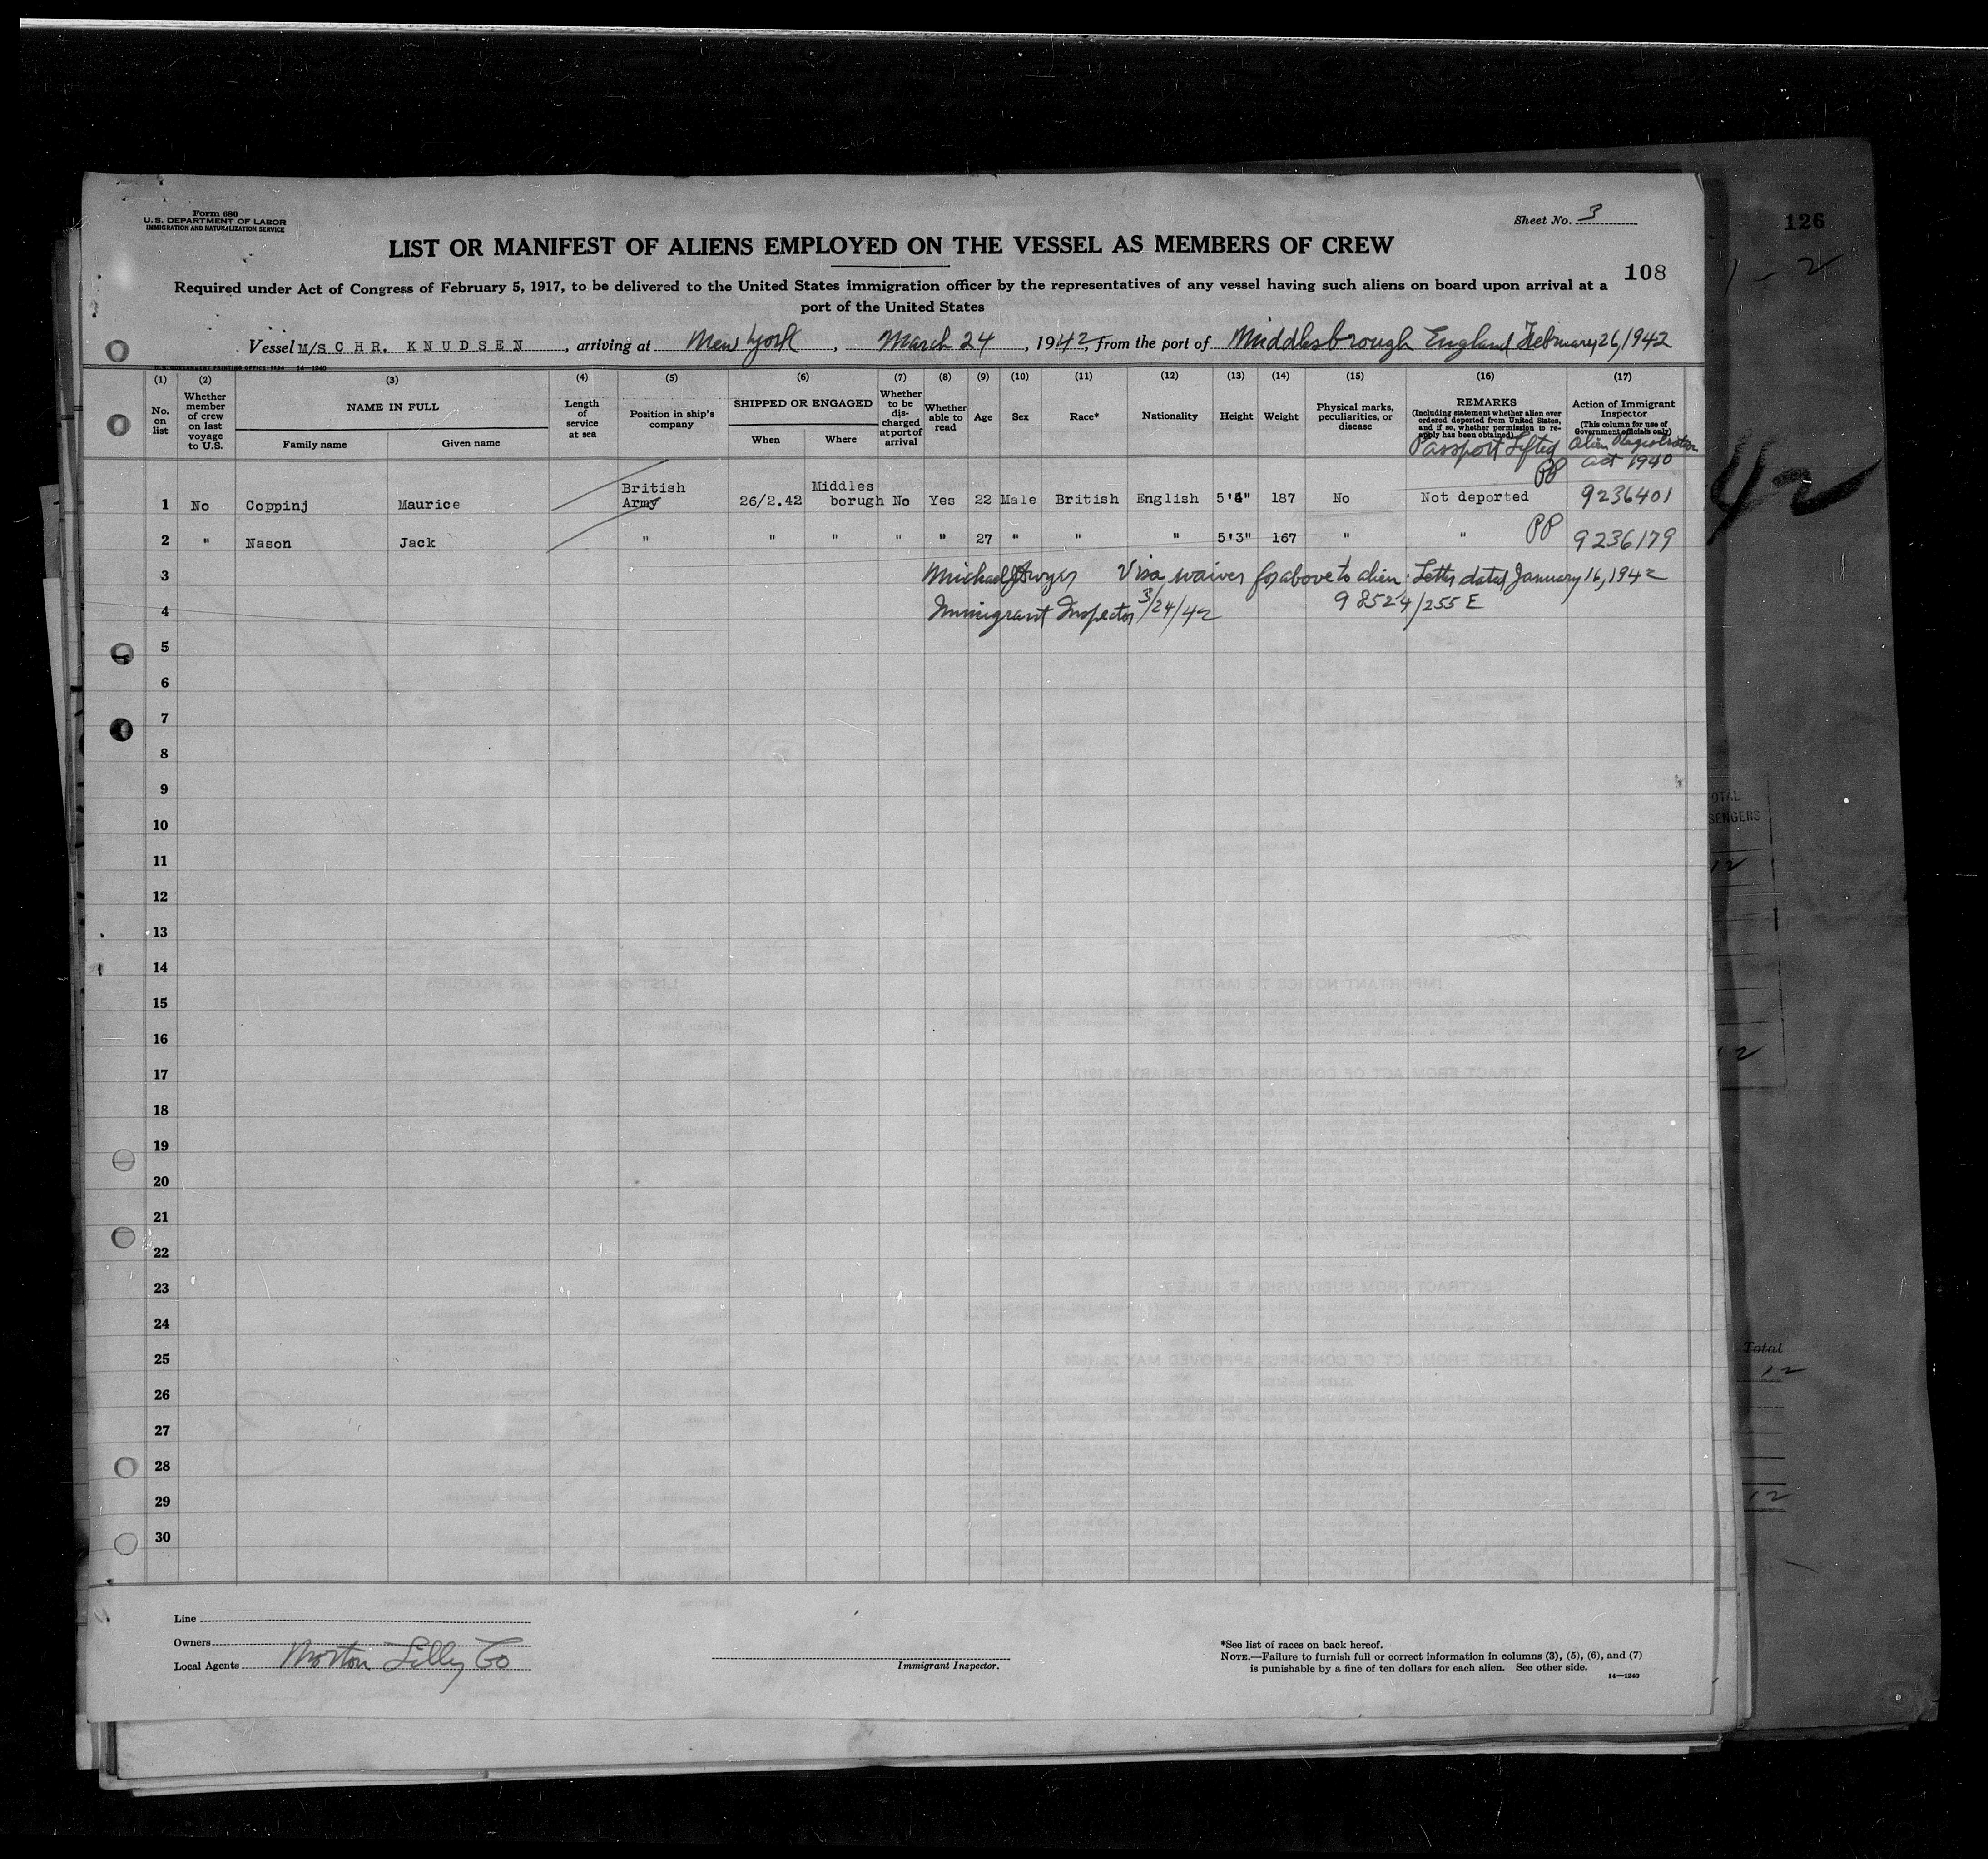 Form 680
U. S. DEPARTMENT OF LABOR
IMMIGRATION AND NATURALIZATION SERVICE
Sheet No. 3
126
LIST OR MANIFEST OF ALIENS EMPLOYED ON THE VESSEL AS MEMBERS OF CREW
108
Required under Act of Congress of February 5, 1917, to be delivered to the United States immigration officer by the representatives of any vessel having such aliens on board upon arrival at a
port of the United States
Vessel M/S CHR. KNUDSEN, arriving at New York, March 24, 1942, from the port of Middlesbrough England February 26, 1942
U. S. GOVERNMENT PRINTING OFFICE: 1934 14—1240
(1) (2) (3) (4) (5) (6) (7) (8) (9) (10) (11) (12) (13) (14) (15) (16) (17)
No. on list
Whether member of crew on last voyage to U.S.
NAME IN FULL
Family name
Given name
Length of service at sea
Position in ship's company
SHIPPED OR ENGAGED
When
Where
Whether to be discharged at port of arrival
Whether able to read
Age
Sex
Race*
Nationality
Height
Weight
Physical marks, peculiarities, or disease
REMARKS
(Including statement whether alien ever ordered deported from United States, and if so, whether permission to reapply has been obtained)
Action of Immigrant Inspector
(This column for use of Government officials only)
Passport Lifted
Alien Registration
Act 1940
PP
1 No Coppinj Maurice British Army 26/2.42 Middles borugh No Yes 22 Male British English 187 No Not deported 9236401
2 " Nason Jack " " " " " 27 " " " 5'3" 167 " " PP 9236179
3 Michael J Dwyer Visa waiver for above to alien. Letter dated January 16, 1942
4 Immigrant Inspector 3/24/42 98524/255 E
5
6
7
8
9
10
11
12
13
14
15
16
17
18
19
20
21
22
23
24
25
26
27
28
29
30
Line
Owners
Local Agents Norton Lilly Co
Immigrant Inspector.
*See list of races on back hereof.
NOTE.—Failure to furnish full or correct information in columns (3), (5), (6), and (7)
is punishable by a fine of ten dollars for each alien. See other side.
14—1240
42
Total
12
12